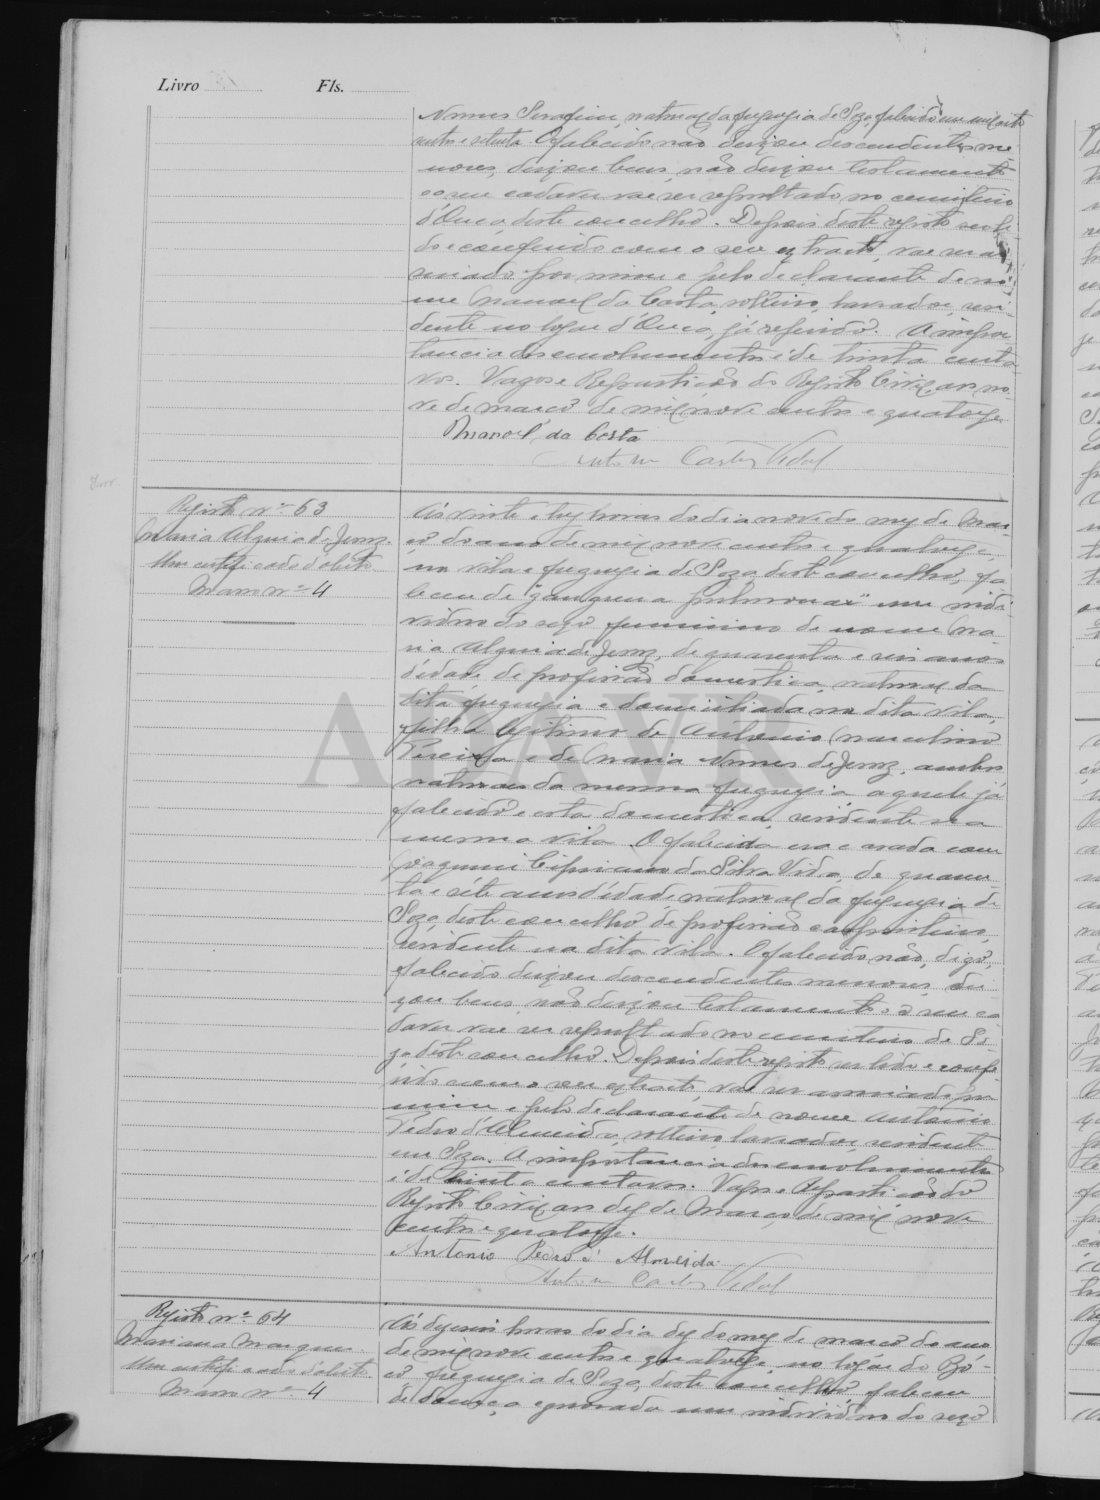 Livro
Fls.
Nunes Serafim, natural da freguesia de Soza, falecida em mil oito
centos e setenta. O falecido não deixou descendentes me
nores, deixou bens, não deixou testamento
e o seu cadaver vae ser sepultado no cemiterio
d'Ouca, deste concelho. Depois deste registo ser li
do e conferido com o seu extracto, vae ser as
sinado por mim e pelo declarante de no
me Manoel da Costa, solteiro, lavrador, resi
dente no logar d'Ouca, já referido. A impor
tancia dos emolumentos é de trinta centa
vos. Vagos e Repartição do Registo Civil, aos no
ve de março de mil nove centos e quatorze
Manoel da Costa
Antonio Carlos Vidal
Registo nº 63
Maria de Jesus
Um certificado d'obito
Maço nº 4
Ás vinte e tres horas do dia nove do mez de Mar
ço do ano de mil nove centos e quatorze,
na vila e freguezia de Soza deste concelho, fa
leceu de "gangrena pulmonar" um indi
viduo do sexo feminino de nome Ma
ria de Jesus, de quarenta e seis anos
d'idade, de profissão domestica, natural da
dita freguezia e domiciliada na dita vila,
filha legitima de Antonio Marcelino
Pereira e de Maria Nunes de Jesus, ambos
naturaes da mesma freguezia, aquele já
falecido e esta domestica, residente na
mesma vila. O falecido era casado com
Joaquim Cipriano da Silva Vida, de quaren
ta e sete anos d'idade natural da freguezia de
Soza, deste concelho, de profissão carpinteiro,
residente na dita vila. O falecido não, digo,
falecido deixou descendentes menores, dei
xou bens, não deixou testamento e o seu ca
daver vae ser sepultado no cemiterio de So
za deste concelho. Depois deste registo ser lido e confe
rido com o seu extracto, vae ser assinado por
mim e pelo declarante de nome Antonio
Pedro d'Almeida, solteiro, lavrador, residente
em Soza. A importancia dos emolumentos
é de trinta centavos. Vagos e Repartição do
Registo Civil, aos dez de Março de mil nove
centos e quatorze.
Antonio Pedro d'Almeida
Antonio Carlos Vidal
Registo nº 64
Mariana Marques
Um certificado d'obito
Maço nº 4
Ás dezeseis horas do dia dez do mez de março do ano
de mil nove centos e quatorze, no logar do
freguezia de Soza, deste concelho, faleceu
de doença ignorada um individuo do sexo
ADAVR